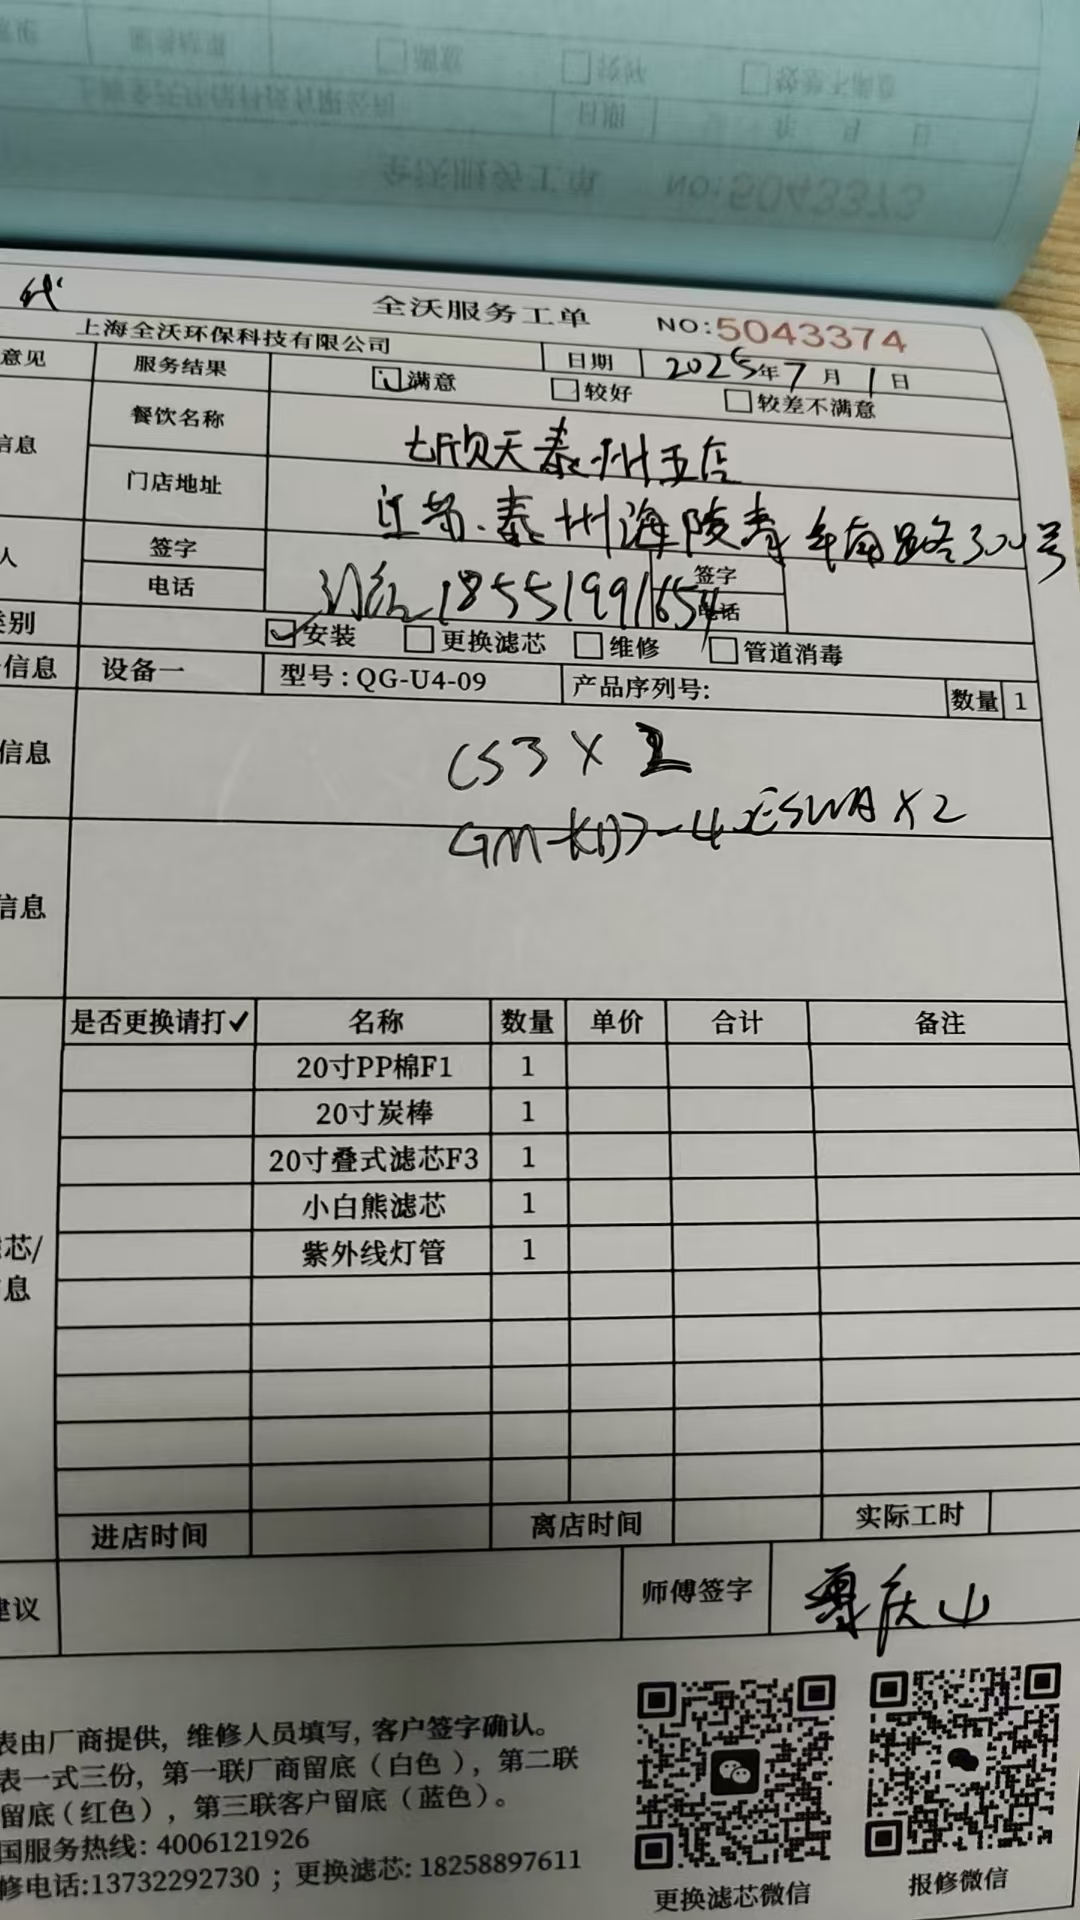 全沃服务工单 NO:5043374
上海全沃环保科技有限公司 日期 2025年7月1日
意见 服务结果 满意 较好 较差不满意
信息 餐饮名称 七欣天泰州五店
门店地址 江苏.泰州海陵青年南路300号
人 签字 签字
电话 18551991654 电话
类别 安装 更换滤芯 维修 管道消毒
信息 设备一 型号:QG-U4-09 产品序列号: 数量 1
信息 CS3 X 2
GM-K1D7-4 ESWA X 2
信息
是否更换请打✓ 名称 数量 单价 合计 备注
20寸PP棉F1 1
20寸炭棒 1
20寸叠式滤芯F3 1
小白熊滤芯 1
滤芯/ 紫外线灯管 1
信息
进店时间 离店时间 实际工时
建议 师傅签字 庆山
表由厂商提供, 维修人员填写, 客户签字确认。
表一式三份, 第一联厂商留底(白色), 第二联
留底(红色), 第三联客户留底(蓝色)。
国服务热线: 4006121926
修电话:13732292730 ; 更换滤芯: 18258897611
更换滤芯微信 报修微信